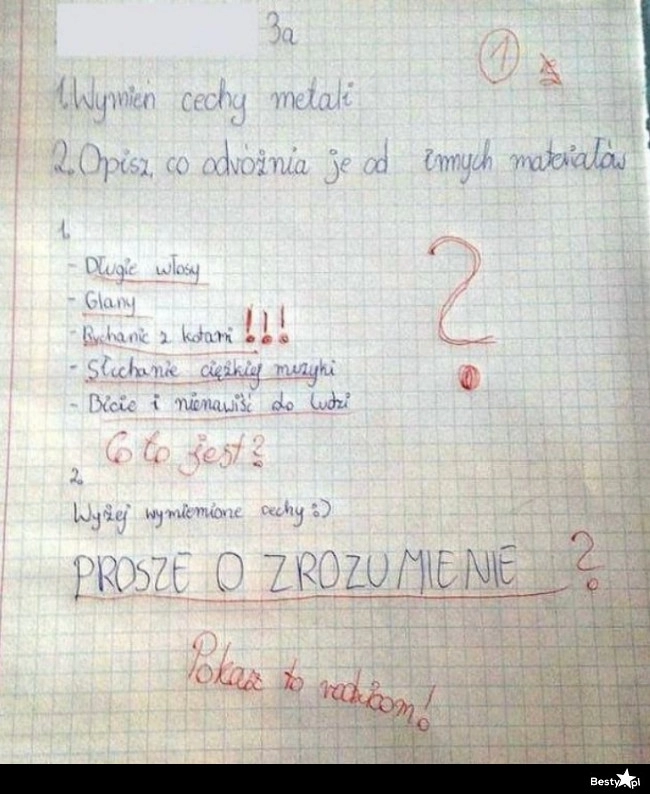 3a
1
1. Wymień cechy metali
2. Opisz, co odróżnia je od innych materiałów
1.
- Długie włosy
- Glany
- Ruchanie z kotami !!!
- Słuchanie ciężkiej muzyki
- Bicie i nienawiść do ludzi
?
Co to jest?
2.
Wyżej wymienione cechy :)
PROSZE O ZROZUMIENIE ?
Pokaż to rodzicom!
Besty.pl